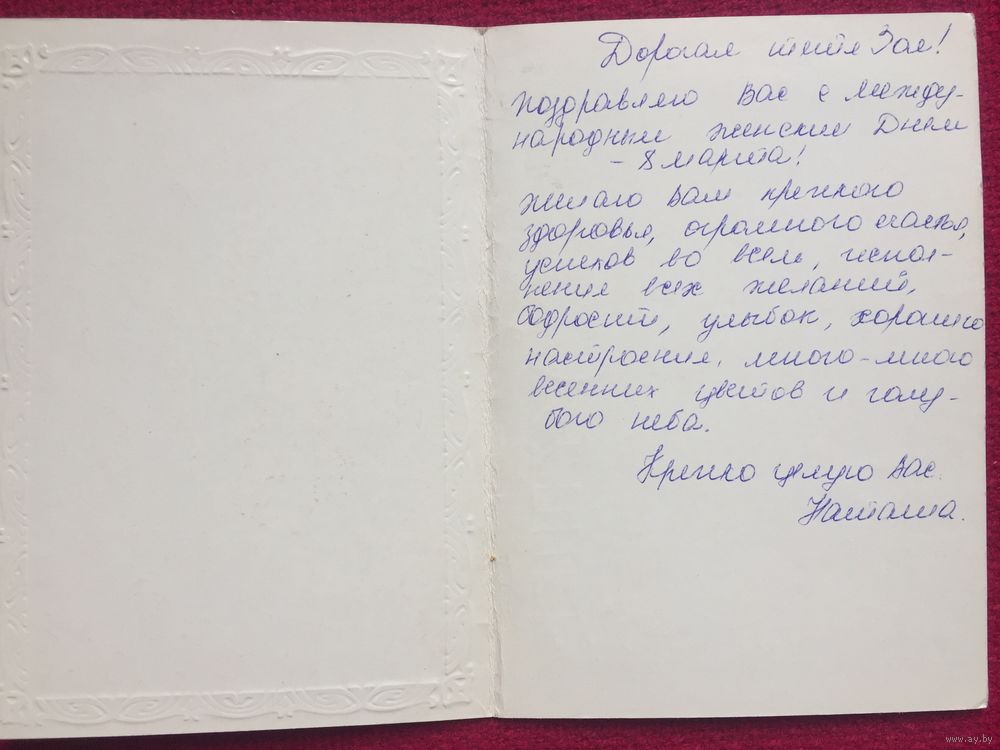 Дорогая тетя Зоя!
Поздравляю Вас с между-
народным женским Днем
- 8 марта!
Желаю Вам крепкого
здоровья, огромного счастья,
успехов во всем, испол-
нения всех желаний,
бодрости, улыбок, хорошего
настроения, много-много
весенних цветов и голу-
бого неба.
Крепко целую Вас.
Наташа.
www.ay.by